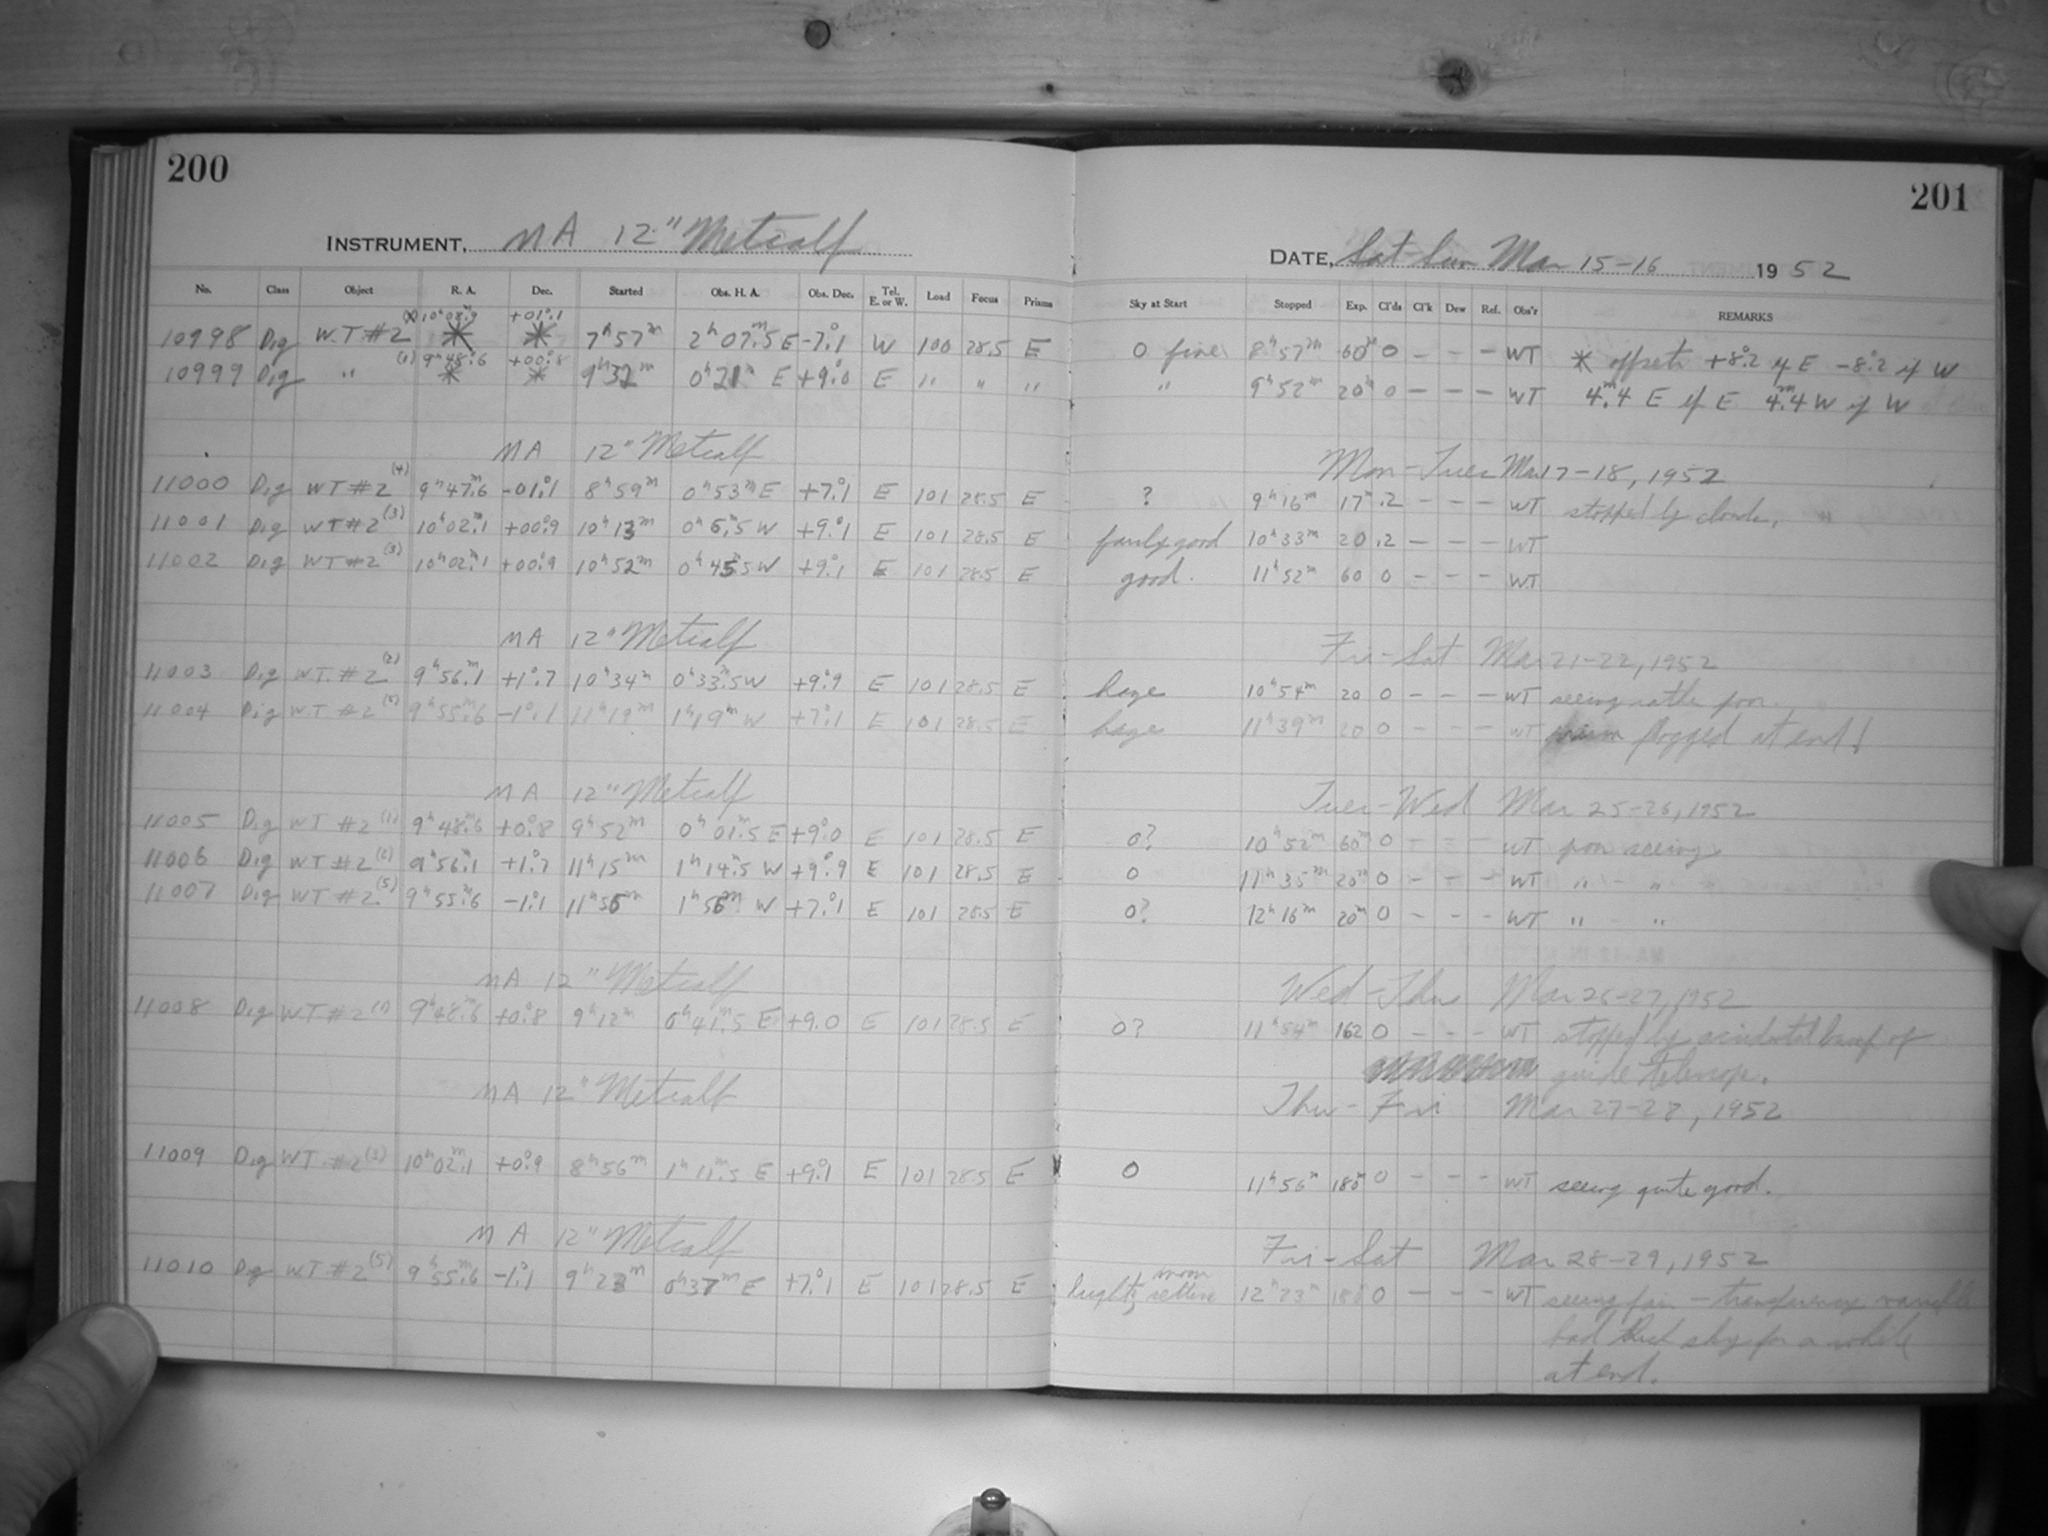 200
201
INSTRUMENT, MA 12" Metcalf
DATE, Sat-Sun Mar 15-16 1952
No. Class Object R. A. Dec. Started Obs. H. A. Obs. Dec. Tel. E. or W. Load Focus Prisms Sky at Start Stopped Exp. Cl'ds Cl'k Dew Ref. Obs'r REMARKS
10998 Dig W.T. #2 10h02m.9 * +01°.1 * 7h57m 2h07m.5 E -7°.1 W 100 28.5 E 0 fine 8h57m 60m 0 - - - WT * offsets +8°.2 if E -8°.2 if W
10999 Dig " (1) 9h48m.6 * +00°.8 * 9h32m 0h21m E +9°.0 E " " " " 9h52m 20m 0 - - - WT 4m.4 E if E 4m.4 W if W
MA 12" Metcalf Mon-Tues Mar 17-18, 1952
11000 Dig WT #2 (4) 9h47m.6 -01°.1 8h59m 0h53m E +7°.1 E 101 28.5 E ? 9h16m 17m .2 - - - WT stopped by clouds.
11001 Dig WT #2 (3) 10h02m.1 +00°.9 10h13m 0h6m.5 W +9°.1 E 101 28.5 E fairly good 10h33m 20 .2 - - - WT
11002 Dig WT #2 (3) 10h02m.1 +00°.9 10h52m 0h45m.5 W +9°.1 E 101 28.5 E good. 11h52m 60 0 - - - WT
MA 12" Metcalf Fri-Sat Mar 21-22, 1952
11003 Dig WT. #2 (2) 9h56m.1 +1°.7 10h34m 0h33m.5 W +9°.9 E 101 28.5 E haze 10h54m 20 0 - - - WT seeing rather poor.
11004 Dig W.T #2 9h55m.6 -1°.1 11h19m 1h19m W +7°.1 E 101 28.5 E haze 11h39m 20 0 - - - WT fogged at end!
MA 12" Metcalf Tues-Wed Mar 25-26, 1952
11005 Dig WT #2 (1) 9h48m.6 +0°.8 9h52m 0h01m.5 E +9°.0 E 101 28.5 E 0? 10h52m 60m 0 - - - WT poor seeing
11006 Dig WT #2 (2) 9h56m.1 +1°.7 11h15m 1h14m.5 W +9°.9 E 101 28.5 E 0 11h35m 20m 0 - - - WT " - "
11007 Dig WT #2. (5) 9h55m.6 -1°.1 11h56m 1h56m W +7°.1 E 101 28.5 E 0? 12h16m 20m 0 - - - WT " "
MA 12" Metcalf Wed-Thu Mar 26-27, 1952
11008 Dig WT #2 (1) 9h48m.6 +0°.8 9h12m 0h41m.5 E +9.0 E 101 28.5 E 0? 11h54m 162 0 - - - WT stopped by accidental bump of
guide telescope.
MA 12" Metcalf Thu-Fri Mar 27-28, 1952
11009 Dig WT. #2 (3) 10h02m.1 +0°.9 8h56m 1h11m.5 E +9°.1 E 101 28.5 E 0 11h56m 180 0 - - - WT seeing quite good.
MA 12" Metcalf Fri-Sat Mar 28-29, 1952
11010 Dig W.T. #2 (5) 9h55m.6 -1°.1 9h23m 0h37m E +7°.1 E 101 28.5 E bright, moon setting 12h23m 180 0 - - - WT seeing fair - transparency variable
bad thick sky for a while
at end.